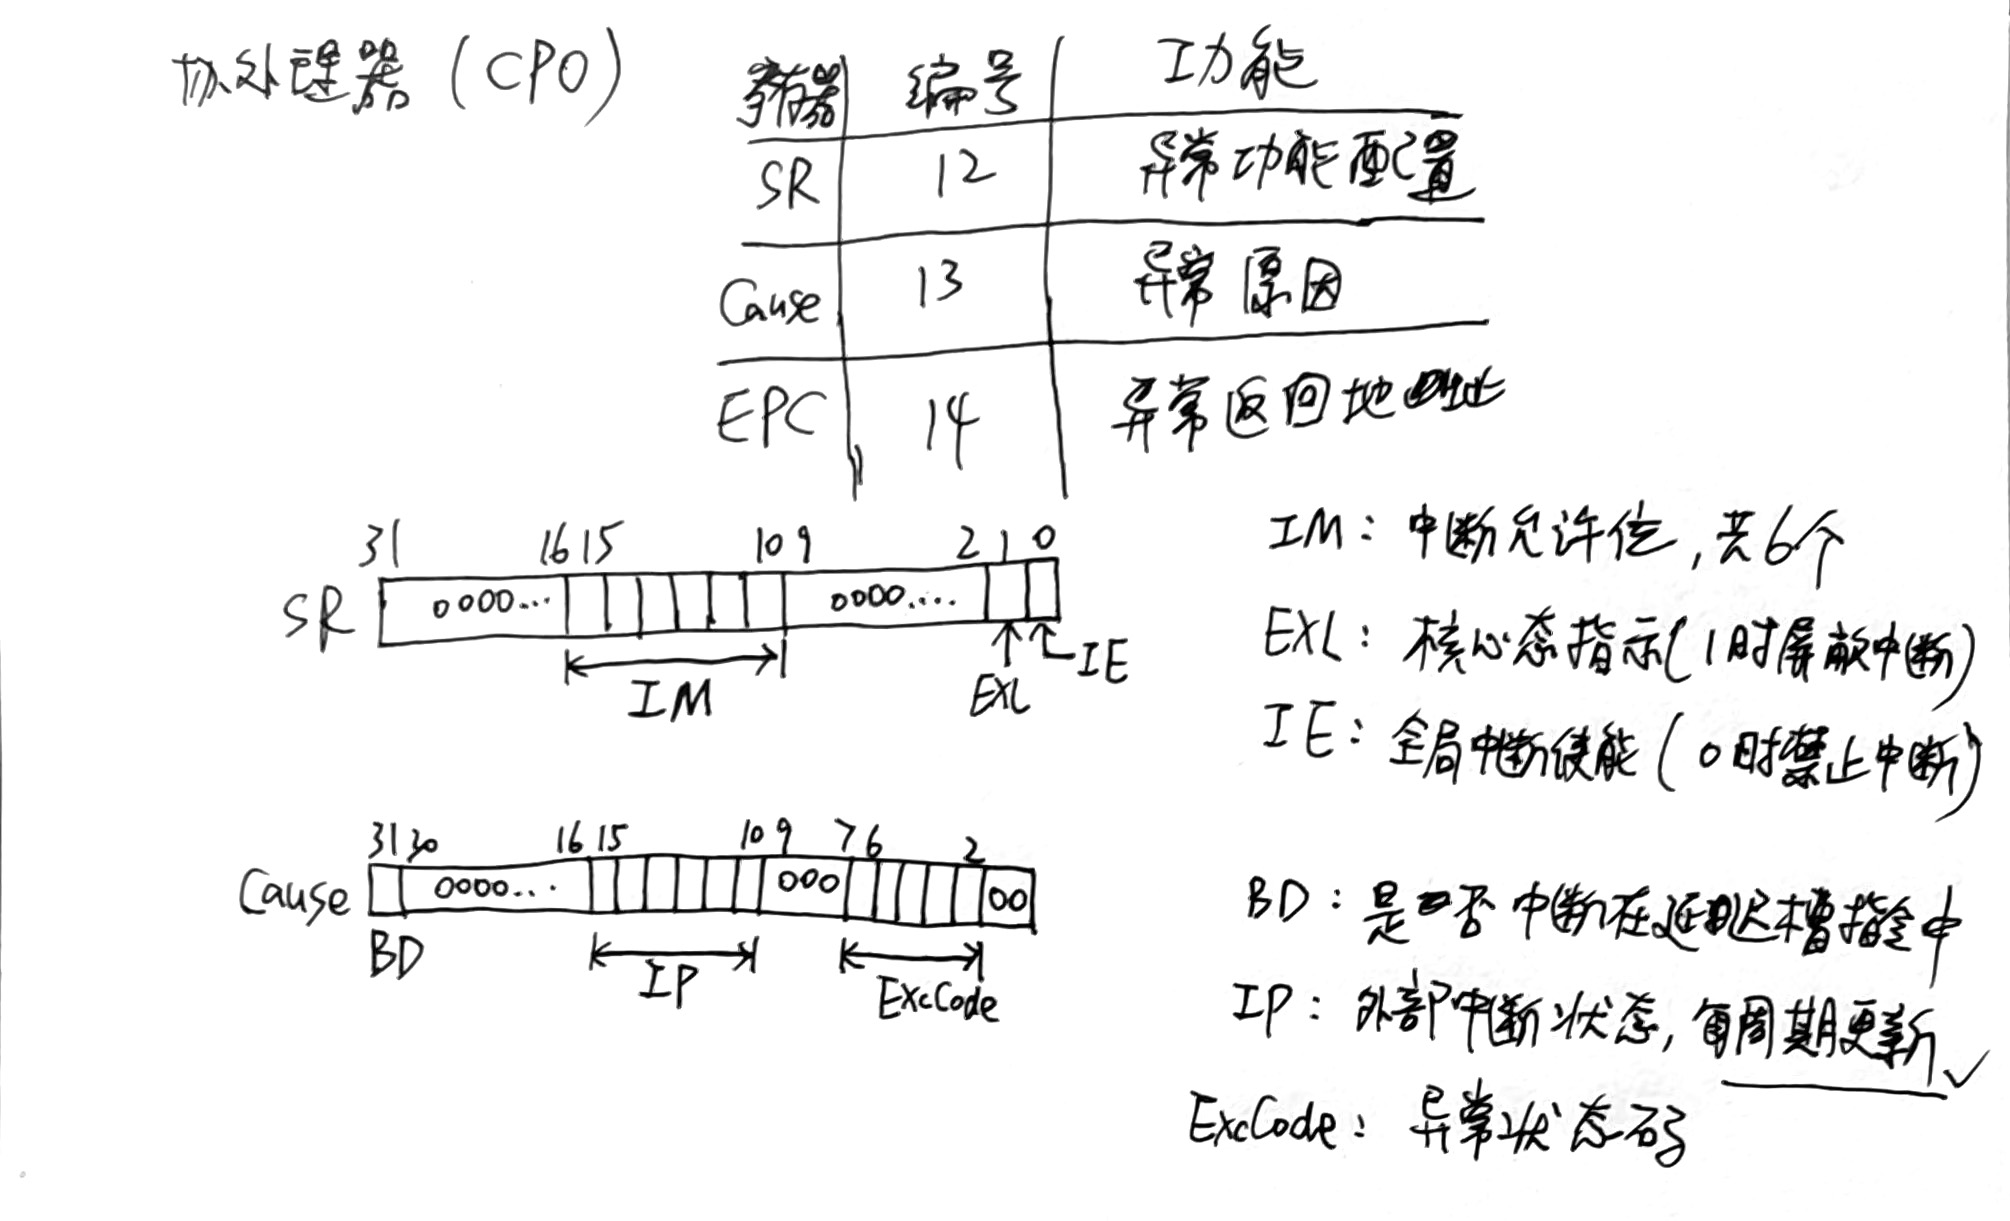 协处理器 (CP0)
寄存器 编号 功能
SR 12 异常功能配置
Cause 13 异常原因
EPC 14 异常返回地址
31 16 15 10 9 2 1 0
SR 0000... 0000....
IM EXL IE
IM: 中断允许位,共6个
EXL: 核心态指示(1时屏蔽中断)
IE: 全局中断使能(0时禁止中断)
31 30 16 15 10 9 7 6 2
Cause 0000... 000 00
BD IP ExcCode
BD: 是否中断在延迟槽指令中
IP: 外部中断状态,每周期更新 ✓
ExcCode: 异常状态码